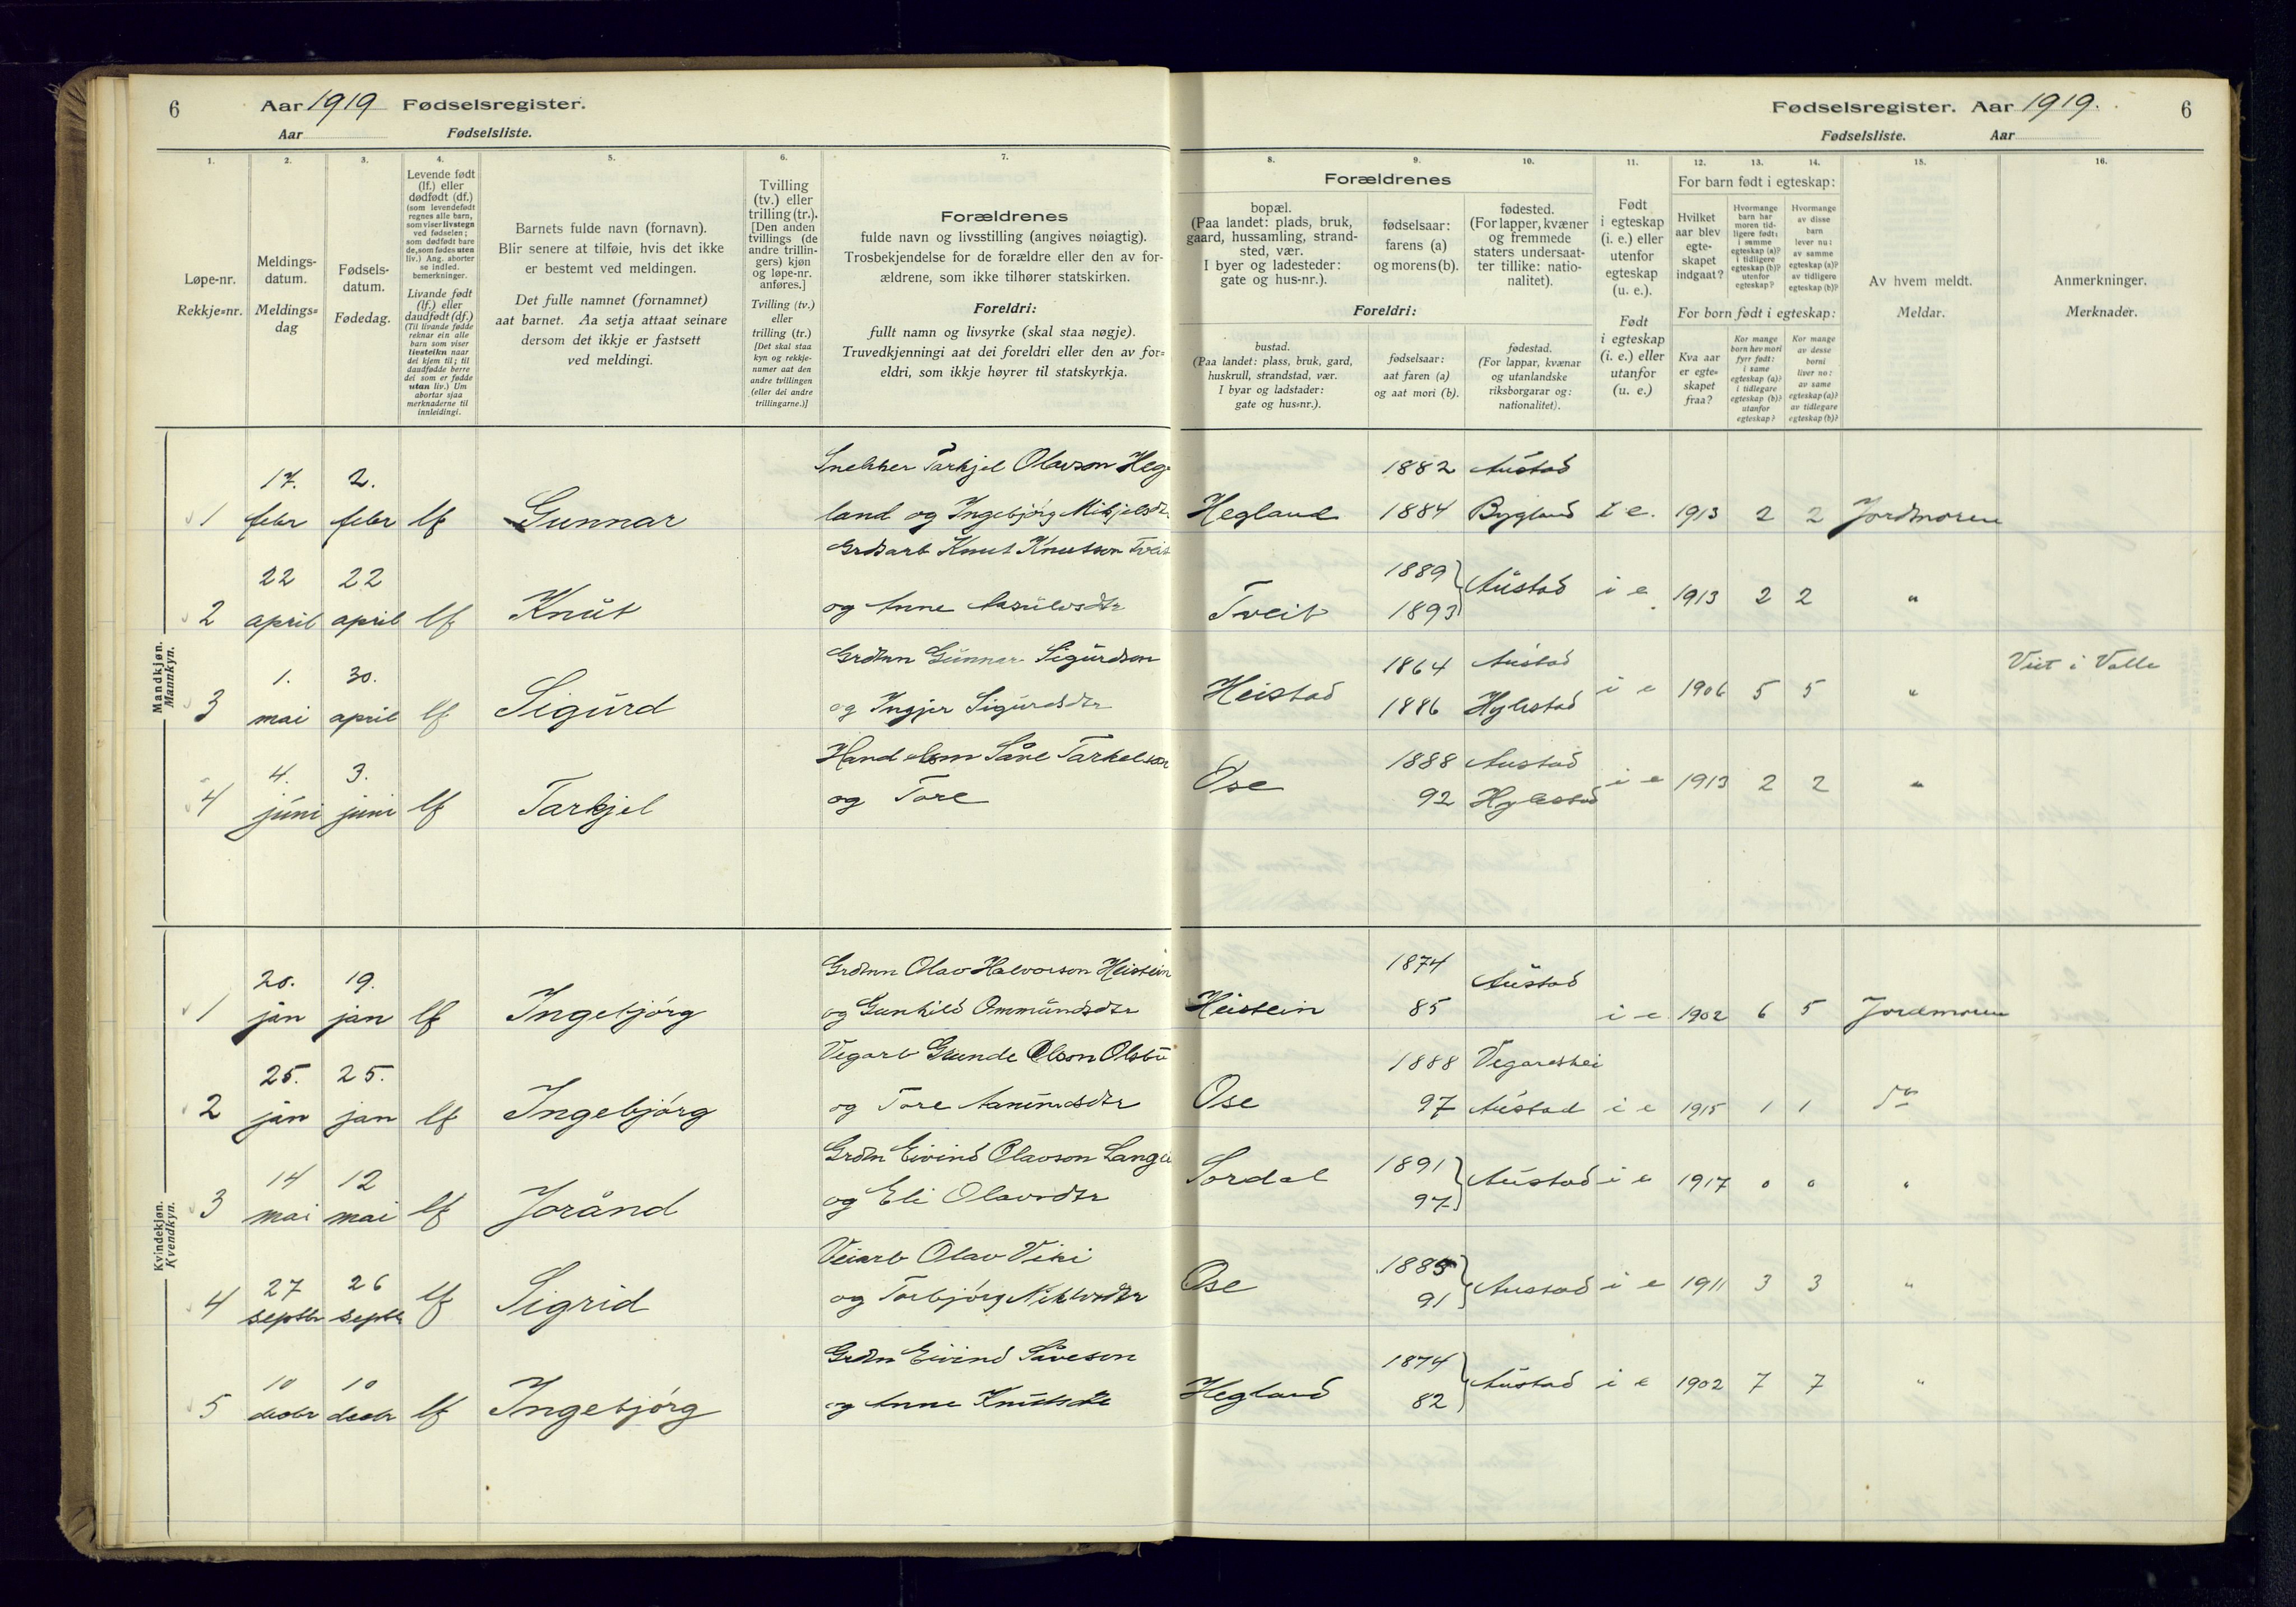 6 Aar 1919 Fødselsregister.
Aar Fødselsliste.
1.
2.
3.
4.
5.
6.
7.
Løpe-nr.
Rekkje=nr.
Meldings-
datum.
Meldings=
dag
Fødsels-
datum.
Fødedag.
Levende født
(lf.) eller
dødfødt (df.)
(som levendefødt
regnes alle barn,
som viser livstegn
ved fødselen;
som dødfødt bare
de, som fødes uten
liv.) Ang. aborter
se indled.
bemerkninger.
Livande født
(lf.) eller
daudfødt (df.)
(Til livande fødde
reknar ein alle
barn som viser
livsteikn naar
dei kjem til; til
daudfødde berre
dei som er fødde
utan liv.) Um
abortar sjaa
merknaderne til
innleidingi.
Barnets fulde navn (fornavn).
Blir senere at tilføie, hvis det ikke
er bestemt ved meldingen.
Det fulle namnet (fornamnet)
aat barnet. Aa setja attaat seinare
dersom det ikkje er fastsett
ved meldingi.
Tvilling
(tv.) eller
trilling (tr.).
[Den anden
tvillings (de
andre trillin-
gers) kjøn
og løpe-nr.
anføres.]
Tvilling (tv.)
eller
trilling (tr.)
[Det skal staa
kyn og rekkje-
numer aat den
andre tvillingen
(eller dei andre
trillingarne.)]
Forældrenes
fulde navn og livsstilling (angives nøiagtig).
Trosbekjendelse for de forældre eller den av for-
ældrene, som ikke tilhører statskirken.
Foreldri:
fullt namn og livsyrke (skal staa nøgje).
Truvedkjenningi aat dei foreldri eller den av for=
eldri, som ikkje høyrer til statskyrkja.
Mandkjøn.
Mannkyn.
Snekker Tarkjel Olavson Heg-
17. 2.
1 febr febr lf Gunnar land og Ingebjörg Mikjelsdtr
Grdsarb Knut Knutson Tveit
22 22
2 april april lf Knut og Anne Aasulvsdtr
Grdmn Gunnar Sigurdson
1. 30.
3 mai april lf Sigurd og Ingjer Sigurdsdtr
4. 3.
4 juni juni lf Tarkjel og Tore
Kvindekjøn.
Kvendkyn.
Grdmn Olav Halvorson Heistein
20. 19.
1 jan jan lf Ingebjörg og Gunhild Ommundsdtr
Vegarb Gunde Olson Olsbu
25. 25.
2 jan jan lf Ingebjörg og Tore Aanundsdtr
Grdm Eivind Olavson Langei
14 12
3 mai mai lf Jorånd og Eli Olavsdtr
Veiarb Olav Viki
27 26
4 septbr septbr lf Sigrid og Torbjörg
Grdm Eivind Såveson
10 10
5 decbr decbr lf Ingebjörg og Anne Knutsdtr
Fødselsregister. Aar 1919. 6
Fødselsliste. Aar
8.
9.
10.
11.
12.
13.
14.
15.
16.
Forældrenes
bopæl.
(Paa landet: plads, bruk,
gaard, hussamling, strand-
sted, vær.
I byer og ladesteder:
gate og hus-nr.).
fødselsaar:
farens (a)
og morens (b).
fødested.
(For lapper, kvæner
og fremmede
staters undersaat-
ter tillike: natio-
nalitet).
Foreldri:
bustad.
(Paa landet: plass, bruk, gard,
huskrull, strandstad, vær.
I byar og ladstader:
gate og hus=nr.).
fødselsaar:
aat faren (a)
og aat mori (b).
fødestad.
(For lappar, kvænar
og utanlandske
riksborgarar og:
nationalitet).
Født
i egteskap
(i. e.) eller
utenfor
egteskap
(u. e.).
Født
i egteskap
(i. e.) eller
utanfor
(u. e.)
For barn født i egteskap:
Hvilket
aar blev
egte-
skapet
indgaat?
Hvormange
barn har
moren tid-
ligere født:
i samme
egteskap (a)?
i tidligere
egteskap (b)?
utenfor
egteskap?
Hvormange
av disse
barn
lever nu:
av samme
egteskap (a)?
av tidligere
egteskap (b)?
For born født i egteskap:
Kva aar
er egte-
skapet
fraa?
Kor mange
born hev mori
fyrr født:
i same
egteskap (a)?
i tidlegare
egteskap (b)?
utanfor
egteskap?
Kor mange
av desse
borni
liver no:
av same
egteskap (a)?
av tidlegare
egteskap (b)?
Av hvem meldt.
Meldar.
Anmerkninger.
Merknader.
1882 Austad
Hegland 1884 Bygland i e. 1913 2 2 Jordmoren
1889
Tveit Austad i e 1913 2 2 "
1893
1864 Austad Viet i Valle
Heistad i e 1906 5 5 "
1886 Hylestad
1888 Austad
Ose i e 1913 2 2 "
92 Hylestad
1874
Austad
Heistein 85 i e 1902 6 5 Jordmoren
1888 Vegardshei
Ose 97 Austad i e 1915 1 1 do
1891
Sordal Austad i e 1917 0 0 "
97
1885
Ose Austad i e 1911 3 3 "
91
1874
Hegland Austad i e 1902 7 7 "
82